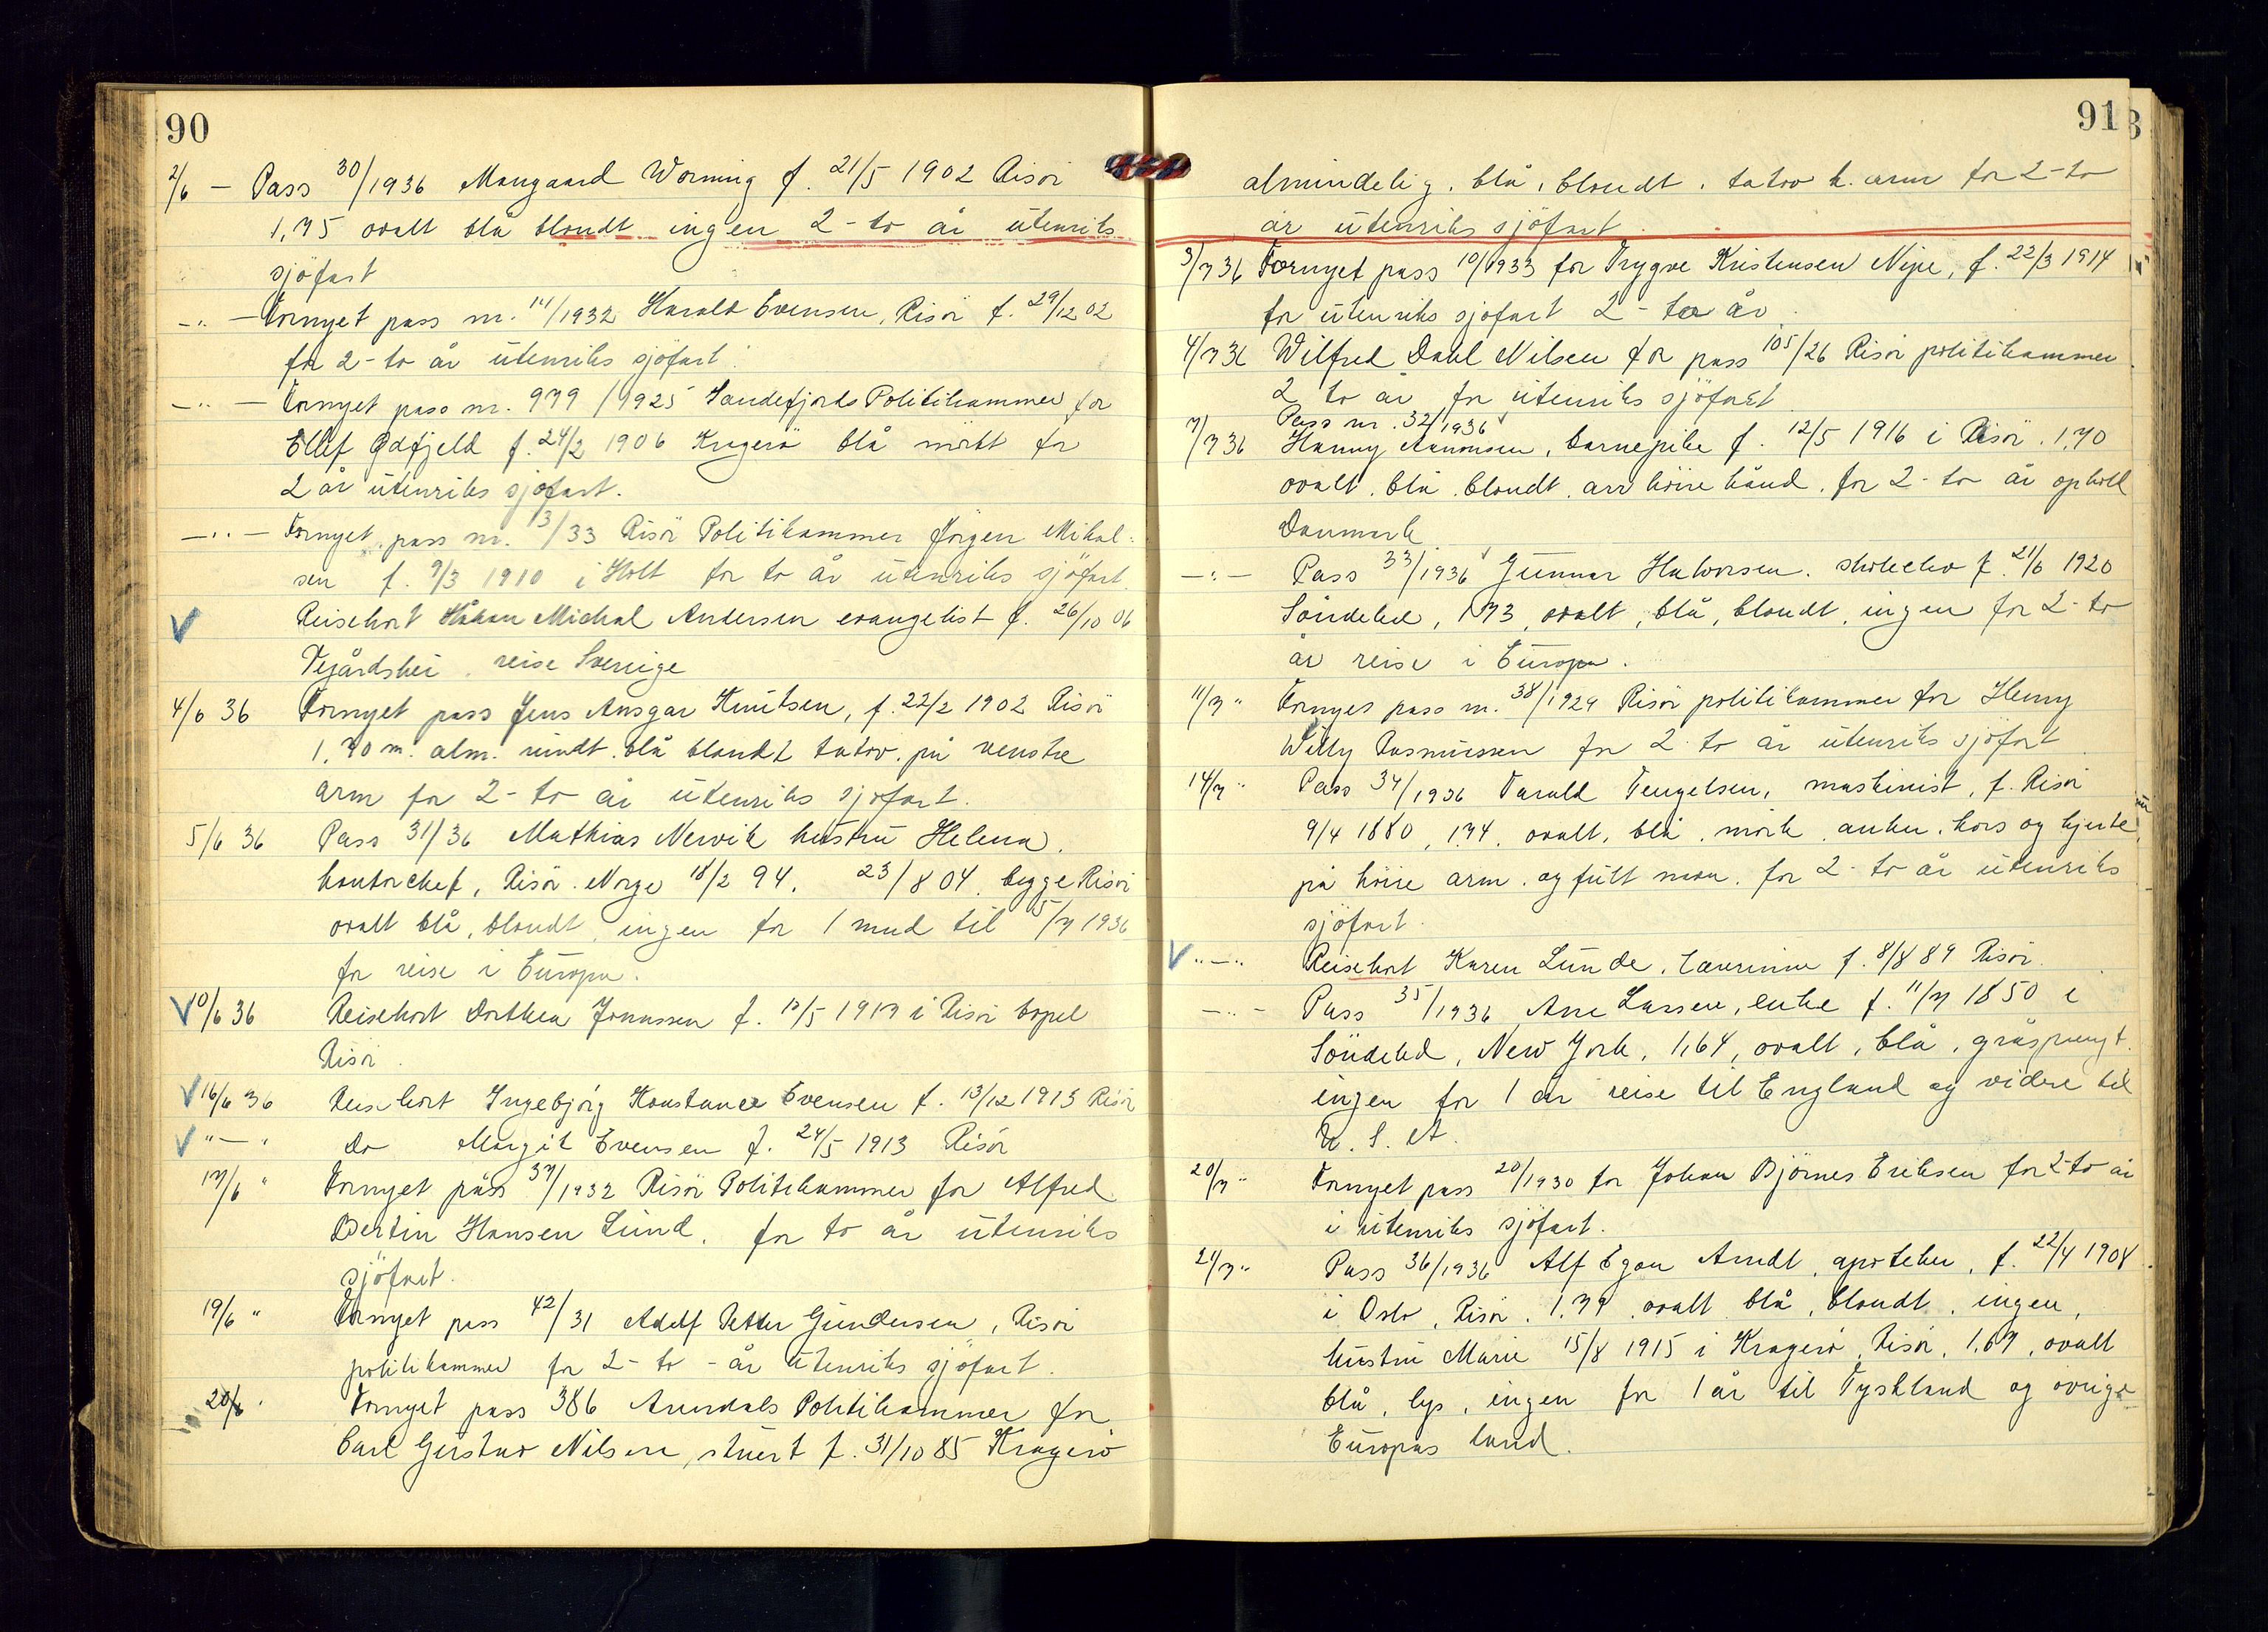 90
2/6 — Pass 30/1936 Mangaard Worning f. 21/5 1902 Risör
1,75 ovalt blå blondt ingen 2-to år utenriks
sjöfart
—„— Fornyet pass nr. 11/1932 Harald Evensen, Risör f. 29/12 02
for 2-to år utenriks sjöfart
—„— Fornyet pass nr. 979/1925 Sandefjords Politikammer for
Ellef f. 24/2 1906 Kragerö blå mörkt for
2 år utenriks sjöfart.
—„— Fornyet pass nr. 13/33 Risör Politikammer Jörgen Mikal-
sen f. 9/3 1910 i Holt for to år utenriks sjöfart.
Reisekort Håkon Michal Andersen evangelist f. 26/10 06
Vegårdshei. reise Sverige
4/6 36 Fornyet pass Jens Ansgar Knutsen, f. 22/2 1902 Risör
1,70 m. alm. rundt. blå blondt tatov. på venstre
arm for 2-to år utenriks sjöfart.
5/6 36 Pass 31/36 Mathias Nervik hustru Helena.
kontorchef, Risör. Norge 18/2 94. 23/8 04. begge Risör
ovalt blå, blondt. ingen for 1 mnd til 5/7 1936
for reise i Europa.
10/6 36 Reisekort Dorthea Jonassen f. 10/5 1917 i Risör bopel
Risör.
16/6 36 Reisekort Ingebjörg Konstance Evensen f. 13/12 1913 Risör
„—„ Do Margit Evensen f. 24/5 1913 Risör
17/6 „ Fornyet pass 37/1932 Risör Politikammer for Alfred
Bertin Hansen Lund. for to år utenriks
sjöfart.
19/6 „ Fornyet pass 42/31 Adolf Petter Gundersen, Risör
politikammer for 2-to-år utenriks sjöfart.
20/6 „ Fornyet pass 386 Arendals Politikammer for
Carl Gustav Nilsen, stuert f. 31/10 85 Kragerö
91
almindelig. blå, blondt. tatov h. arm for 2-to
år utenriks sjöfart.
3/7 36 Fornyet pass 10/1933 for Trygve Kristensen Nipe, f. 22/3 1914
for utenriks sjöfart 2-to år.
4/7 36 Wilfred Dahl Nilsen for pass 105/26 Risör politikammer
2 to år for utenriks sjöfart
Pass nr. 32/1936
7/7 36 Hanny Aanonsen, barnepike f. 12/5 1916 i Risör. 1,70
ovalt. blå. blondt. arr höire hånd. for 2-to år ophold
Danmark
—„— Pass 33/1936 Gunnar Halvorsen. skoleelev f. 21/6 1920
Söndeled, 1,73, ovalt, blå, blondt, ingen for 2-to
år reise i Europa.
11/7 „ Fornyes pass nr. 38/1929 Risör politikammer for Henry
Willy Rasmussen for 2-to år utenriks sjöfart
14/7 „ Pass 34/1936 Tarald Tengelsen, maskinist, f. Risör
9/4 1880, 1.74. ovalt, blå. mörk. anker. kors og hjerte
på höire arm. og fullt mon. for 2-to år utenriks
sjöfart.
„—„ Reisekort Karen Lunde. lærerinne f. 8/8 89 Risör.
—„— Pass 35/1936 Ane Larsen, enke f. 11/7 1850 i
Söndeled, New York, 1,64, ovalt, blå, gråsprengt.
ingen for 1 år reise til England og videre til
U. S. A.
20/7 „ Fornyet pass 20/1930 for Johan Björnes Eriksen for 2-to år
i utenriks sjöfart.
21/7 „ Pass 36/1936 Alf Egon Arndt, apoteker, f. 22/4 1908
i Oslo, Risör. 1.79. ovalt blå, blondt. ingen,
hustru Marie 15/8 1915 i Kragerö. Risör. 1.67, ovalt
blå, lys, ingen for 1 år til Tyskland og övrige
Europas land.